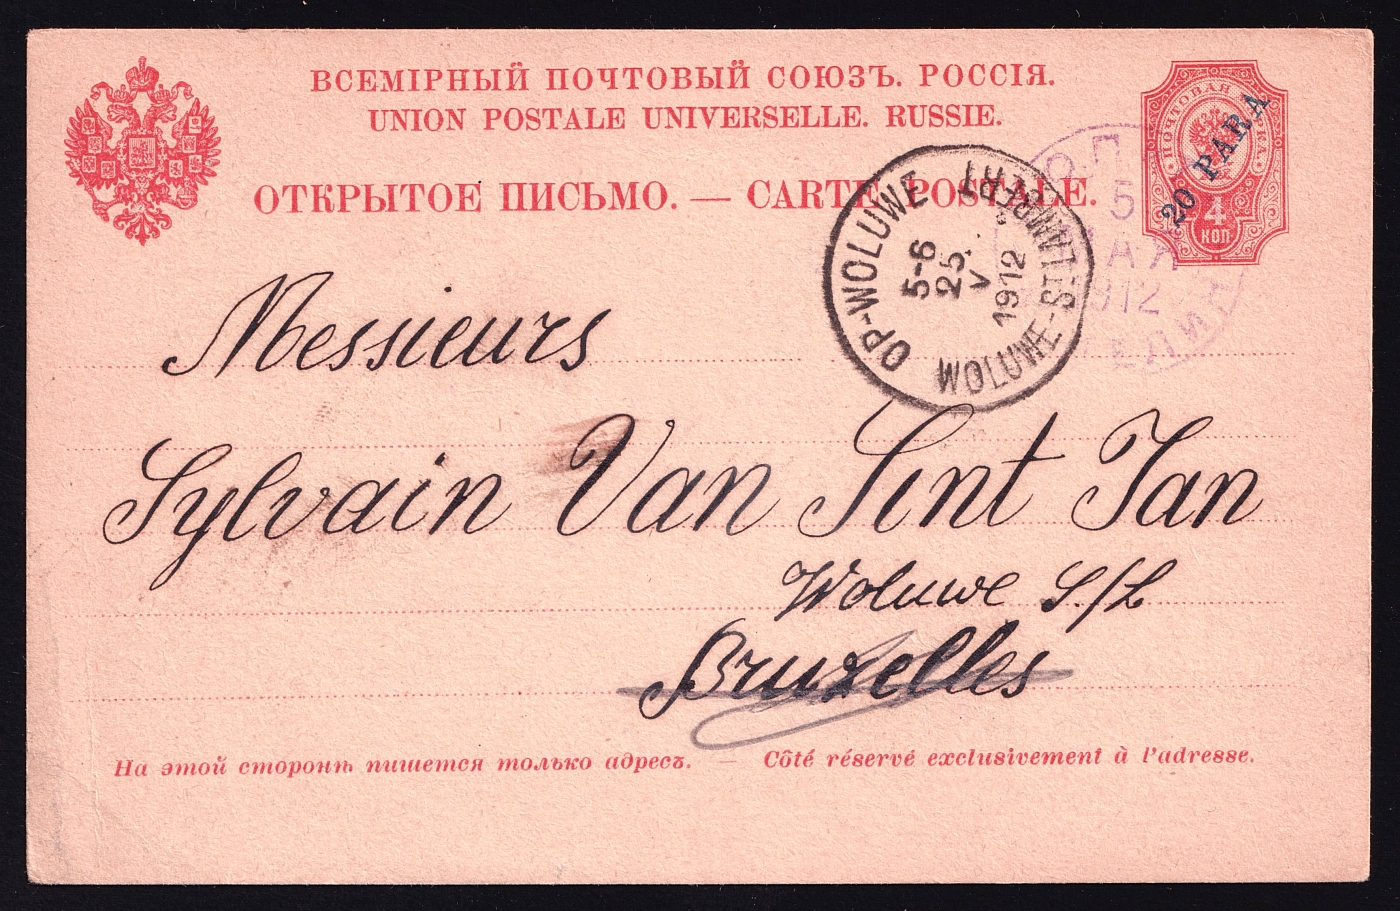 ВСЕМІРНЫЙ ПОЧТОВЫЙ СОЮЗЪ. РОССІЯ.
UNION POSTALE UNIVERSELLE. RUSSIE.
ОТКРЫТОЕ ПИСЬМО. — CARTE POSTALE.
ПОЧТОВАЯ МАРКА.
4
КОП.
20 PARA
5
МАЯ
1912
OP-WOLUWE
WOLUWE-ST. LAMBERT
5-6
25.
V
1912
Messieurs
Sylvain Van Sint Jan
Woluwe S./L
Bruxelles
На этой сторонѣ пишется только адресъ. — Côté réservé exclusivement à l'adresse.